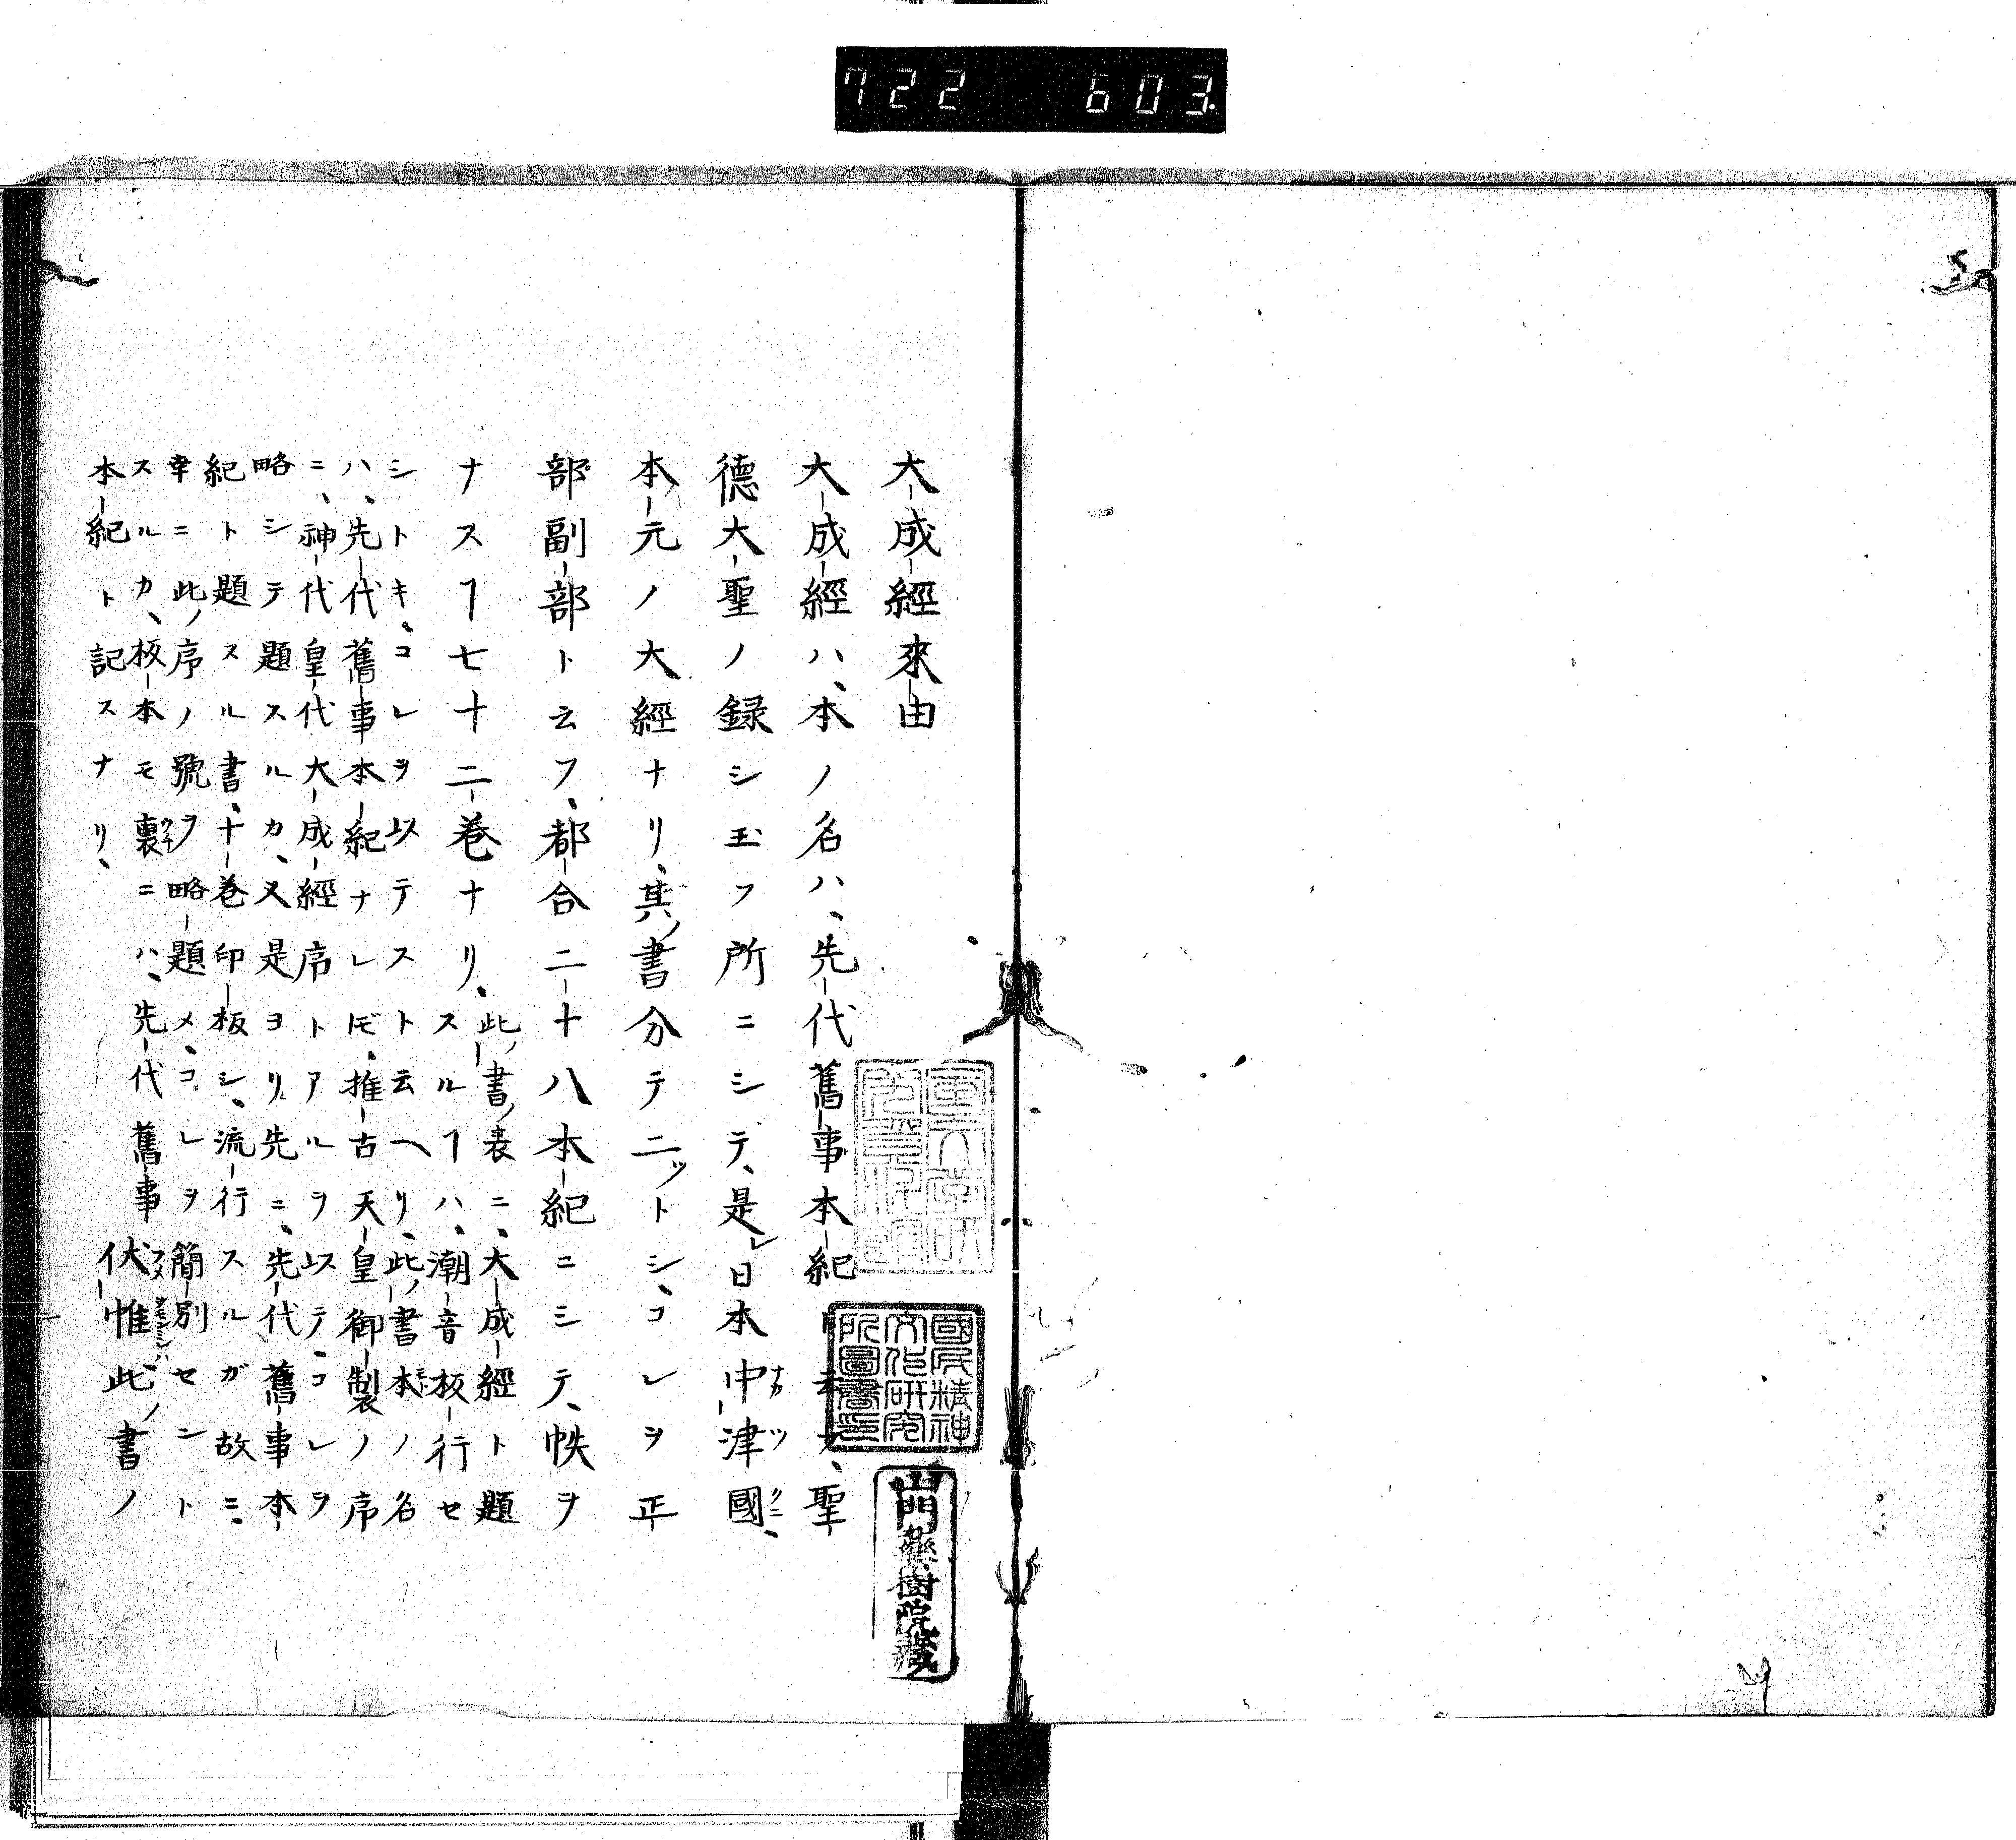 722 603.
大成經來由
大成經ハ、本ノ名ハ、先代舊事本紀ト云フ、聖
德大聖ノ録シ玉フ所ニシテ、是レ日本中津國、
ナカツクニ
本元ノ大經ナリ、其ノ書分テ二ツトシ、コレヲ正
部副部ト云フ、都合二十八本紀ニシテ、帙ヲ
ナスヿ七十二巻ナリ、
此ノ書ノ表ニ、大成經ト題
スルヿハ、潮音板行セ
シトキ、コレヲ以テスト云ヘリ、此ノ書本ノ名
ハ、先代舊事本紀ナレ𪜈、推古天皇御製ノ序
ニ、神代皇代大成經序トアルヲ以テ、コレヲ
略シテ題スルカ、又是ヨリ先ニ、先代舊事本
紀ト題スル書、十巻印板シ、流行スルガ故ニ、
幸ニ此ノ序ノ號ヲ略題メ、コレヲ簡別セント
スルカ、板本モ裏ニハ、先代舊事
ウチ
本紀ト記スナリ、
伏惟此ノ書ノ
國民精神
文化研究
所圖書印
山門
藥樹院藏